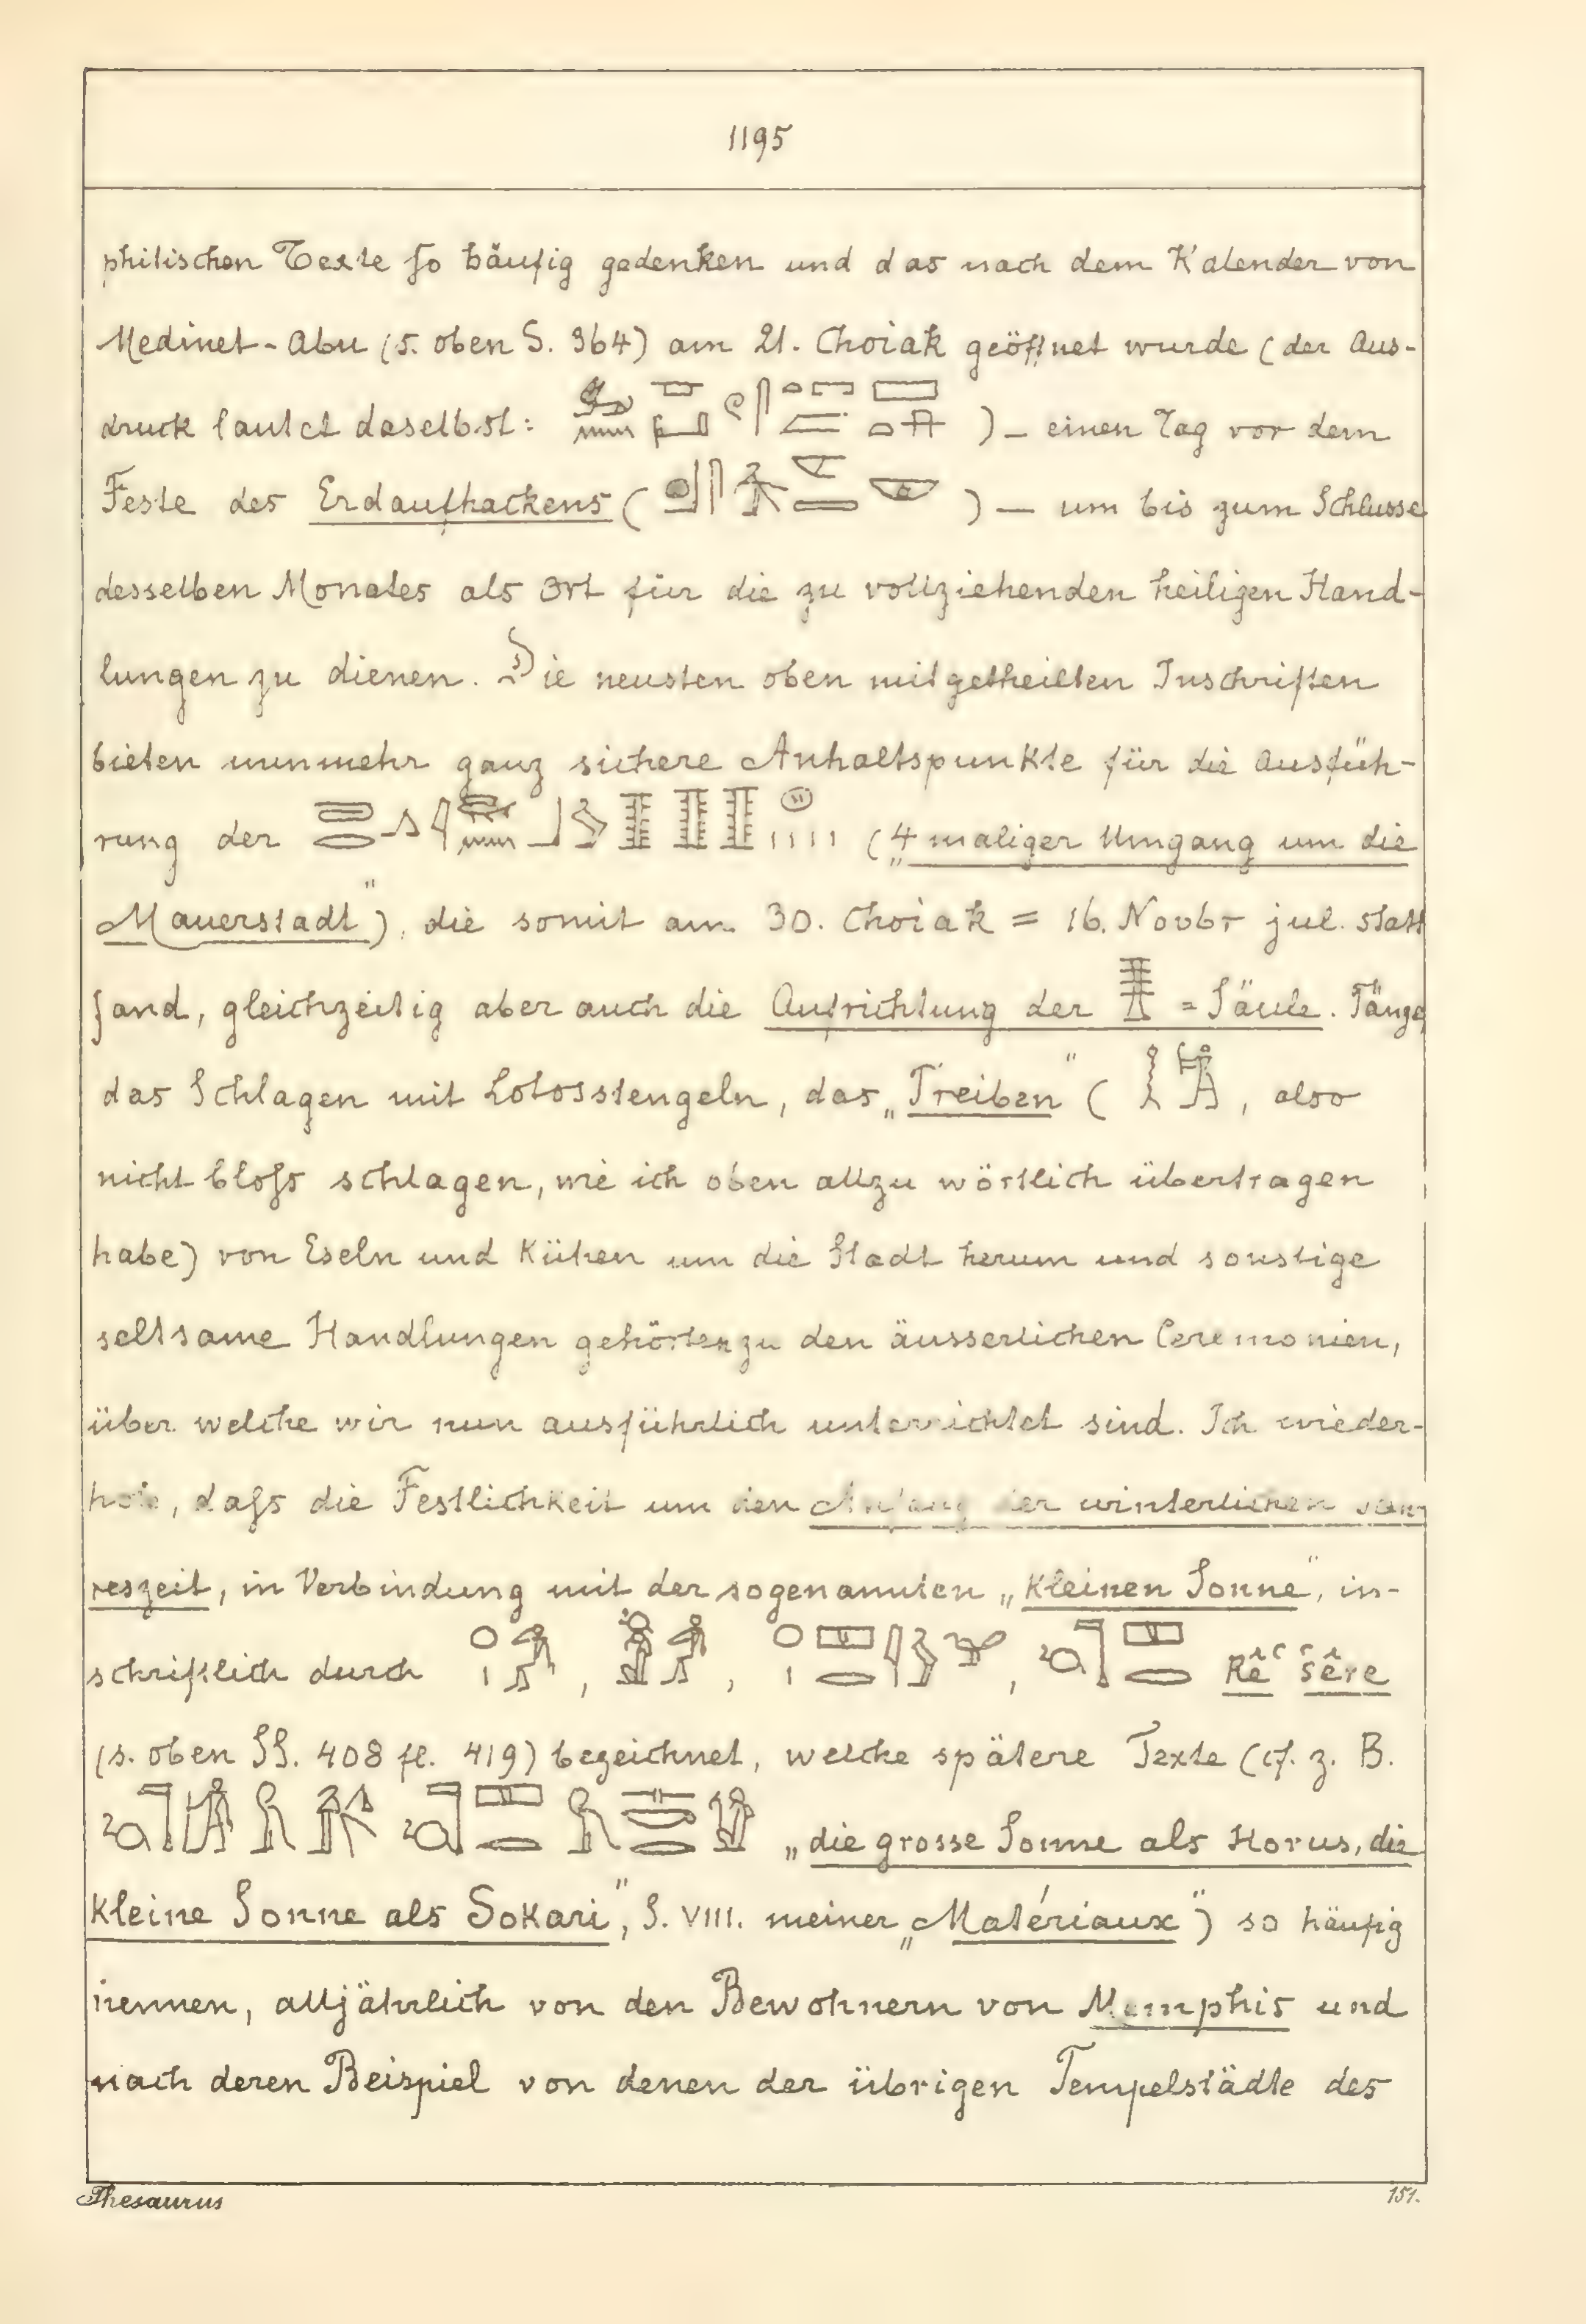 1195
philischen Texte so häufig gedenken und das nach dem Kalender von
Medinet-Abu (s. oben S. 364) am 21. Choiak geöffnet wurde (der Aus-
druck lautet daselbst: ) — einen Tag vor dem
Feste des Erdaufhackens ( ) — um bis zum Schlusse
desselben Monates als Ort für die zu vollziehenden heiligen Hand-
lungen zu dienen. Die neusten oben mitgetheilten Inschriften
bieten nunmehr ganz sichere Anhaltspunkte für die Ausfüh-
rung der („4 maliger Umgang um die
Mauerstadt"), die somit am 30. Choiak = 16. Novbr jul. statt
fand, gleichzeitig aber auch die Aufrichtung der = Säule. Tänze
das Schlagen mit Lotosstengeln, das „Treiben" ( , also
nicht bloſs schlagen, wie ich oben allzu wörtlich übertragen
habe) von Eseln und Kühen um die Stadt herum und sonstige
seltsame Handlungen gehörten zu den äusserlichen Ceremonien,
über welche wir nun ausführlich unterrichtet sind. Ich wieder-
hole, daſs die Festlichkeit um den Anfang der winterlichen Jah-
reszeit, in Verbindung mit der sogenannten „kleinen Sonne", in-
schriftlich durch , , , Rê šêre
(s. oben SS. 408 fl. 419) bezeichnet, welche spätere Texte (cf. z. B.
„die grosse Sonne als Horus, die
kleine Sonne als Sokari", S. VIII. meiner „Matériaux") so häufig
nennen, alljährlich von den Bewohnern von Memphis und
nach deren Beispiel von denen der übrigen Tempelstädte des
Thesaurus
151.